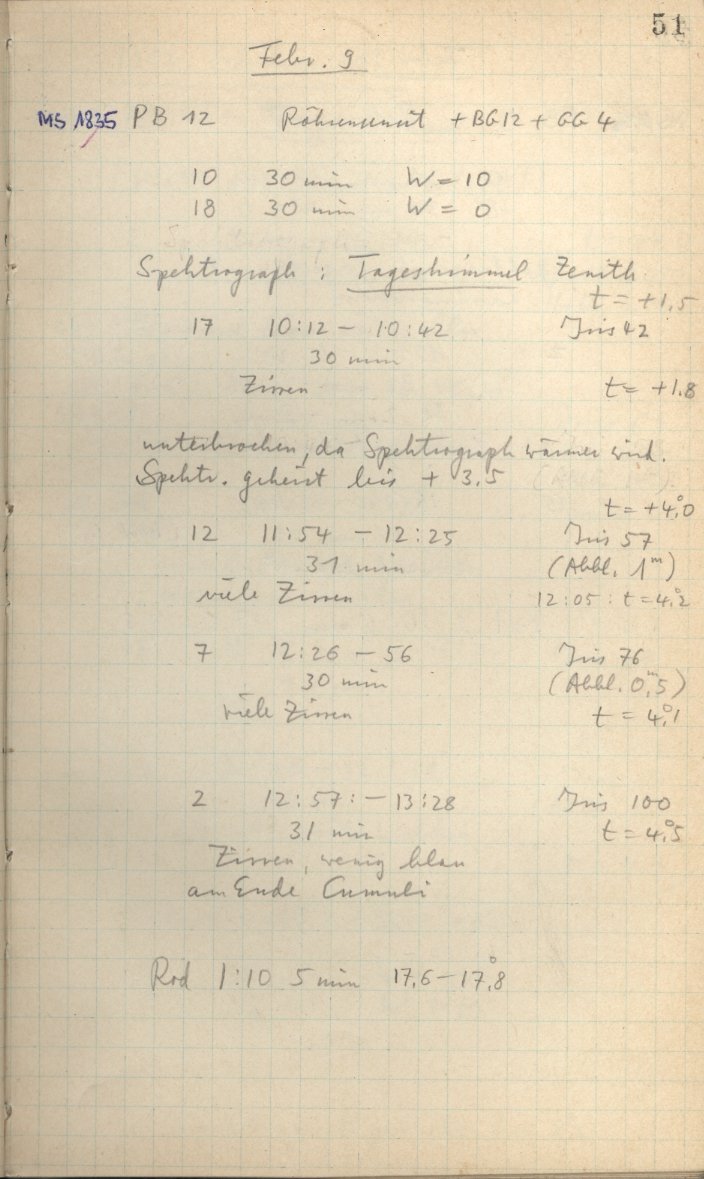 51
Febr. 9
MS 1835 PB 12 Röhrensensit +BG12 + GG 4
10 30 min W = 10
18 30 min W = 0
Spektrograph : Tageshimmel Zenith
t = +1,5
17 10:12 - 10:42 Iris 42
30 min
Zirren t = +1.8
unterbrochen, da Spektrograph wärmer wird.
Spektr. geheizt bis + 3,5
t = +4,°0
12 11:54 - 12:25 Iris 57
31 min (Abbl. 1ᵐ)
viele Zirren 12:05 : t = 4,°2
7 12:26 - 56 Iris 76
30 min (Abbl. 0,ᵐ5)
viele Zirren t = 4,°1
2 12:57: - 13:28 Iris 100
31 min t = 4,°5
Zirren, wenig blau
am Ende Cumuli
Rod 1:10 5 min 17,6 - 17,°8